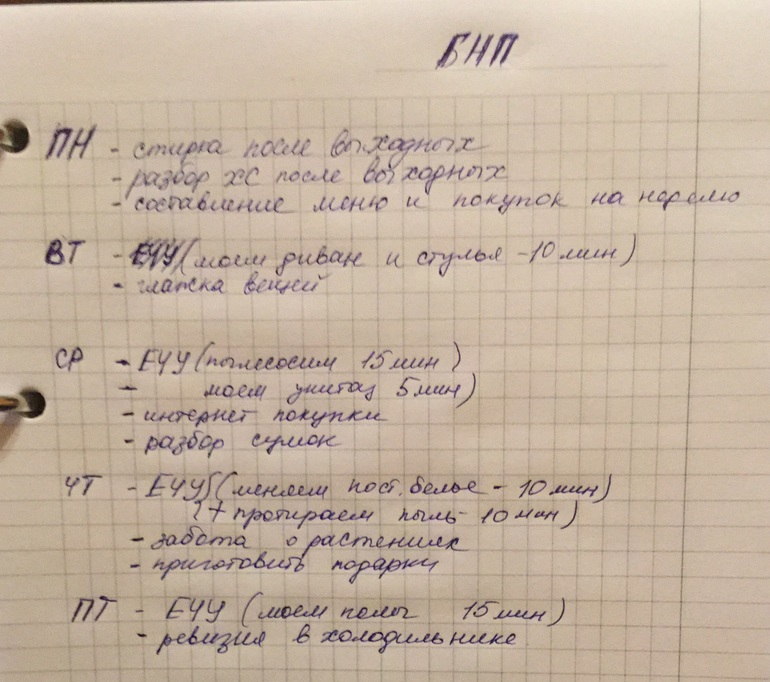 БНП
ПН - стирка после выходных
- разбор ХС после выходных
- составление меню и покупок на неделю
ВТ - ЕЧУ (моем диван и стулья - 10 мин)
- глажка вещей
СР - ЕЧУ (пылесосим 15 мин)
- моем унитаз 5 мин)
- интернет покупки
- разбор сумок
ЧТ - ЕЧУ (меняем пост. белье - 10 мин)
+ протираем пыль - 10 мин)
- забота о растениях
- приготовить подарки
ПТ - ЕЧУ (моем полы 15 мин)
- ревизия в холодильнике